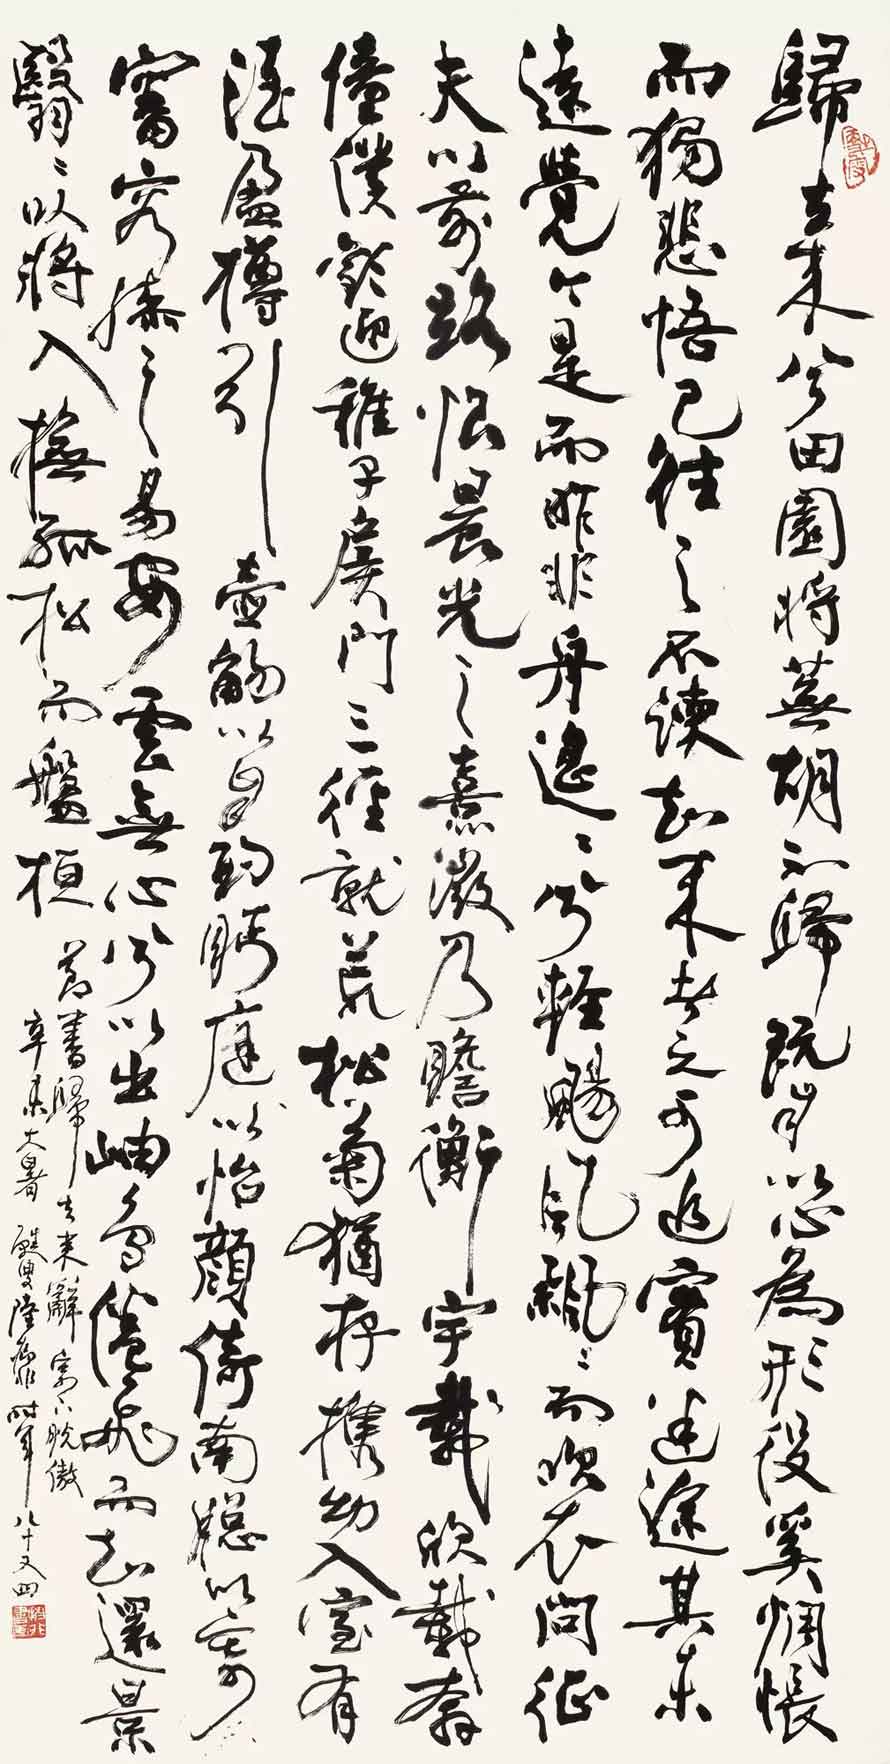 歸去来兮田園將蕪胡不歸既自以心為形役奚惆悵
而獨悲悟已往之不諫知来者之可追實迷途其未
遠覺今是而昨非舟遙々兮輕颺風飄々而吹衣問征
夫以前路恨晨光之熹微乃瞻衡宇載欣載奔
僮僕歡迎稚子候門三徑就荒松菊猶存攜幼入室有
酒盈樽引壺觴以自酌眄庭以怡顏倚南窗以寄
審容膝之易安雲無心兮以出岫鳥倦飛而知還景
翳々以將入撫孤松而盤桓
節書歸去来辭 寄下脫傲
辛未大暑 甦叟陸抑非時年八十又四